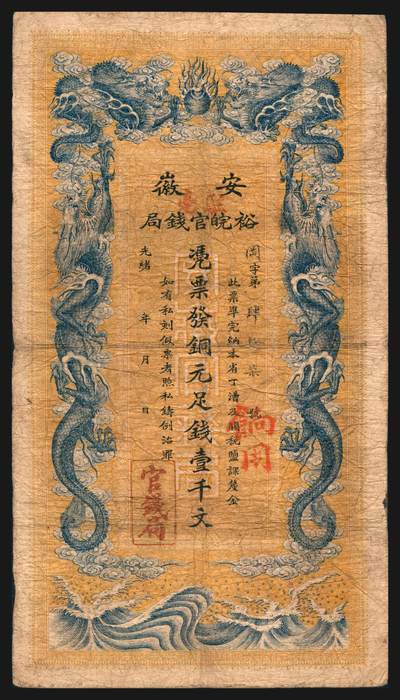 安徽
裕皖官錢局
字第肆拾柒號
此票準完納本省丁漕及關稅鹽課釐金
憑票發銅元足錢壹千文
如有私刻假票者照私鑄例治罪
光緒 年 月 日
官錢局